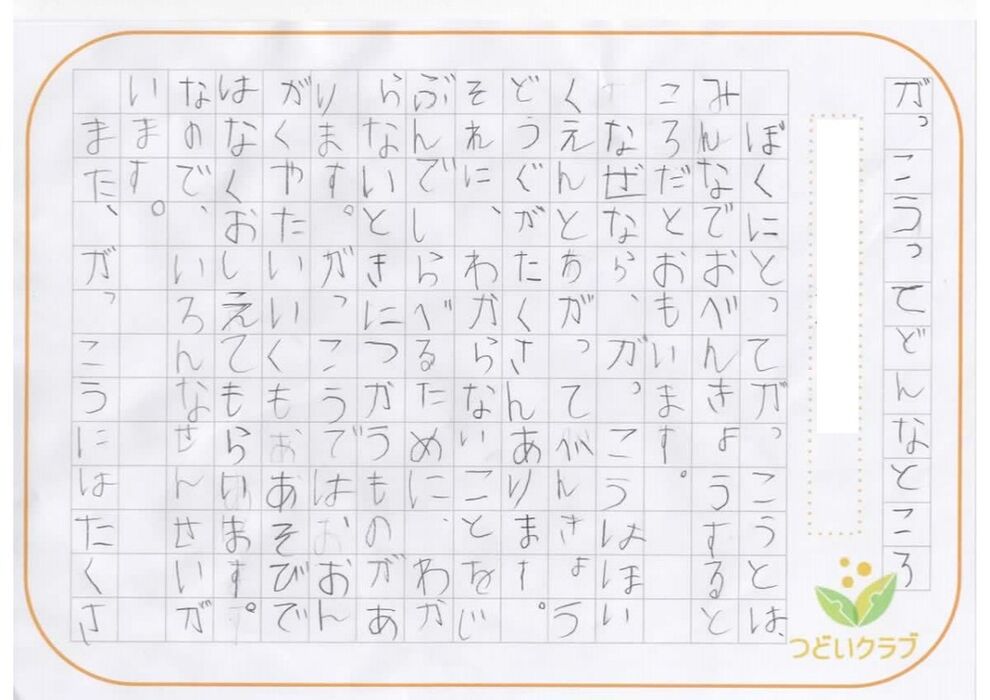 がっこうってどんなところ
ぼくにとってがっこうとは、
みんなでおべんきょうすると
ころだとおもいます。
なぜなら、がっこうはほい
くえんとちがってべんきょう
どうぐがたくさんあります。
それに、わからないことをじ
ぶんでしらべるために、わか
らないときにつかうものがあ
ります。がっこうではおおん
がくやたいいくもおあそびで
はなくおしえてもらいます。
なので、いろんなせんせいが
います。
また、がっこうにはたくさ
つどいクラブ